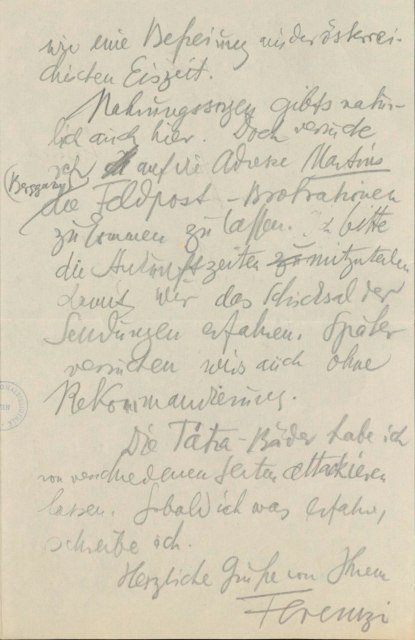 wie eine Befreiung aus der österrei-
chischen Eiszeit.
Nahrungssorgen gibts natür-
lich auch hier. Doch versuche
ich auf die Adresse Martins
die Feldpost-Brotrationen
zukommen zu lassen. Ich bitte
die Ankunftzeiten mitzuteilen
damit wir das Schicksal der
Sendungen erfahren. Später
versuchen wirs auch ohne
Rekommandierung.
Die Tátra-Bäder habe ich
von verschiedenen Seiten attackieren
lassen. Sobald ich was erfahre,
schreibe ich.
Herzliche Grüße von Ihrem
Ferenczi